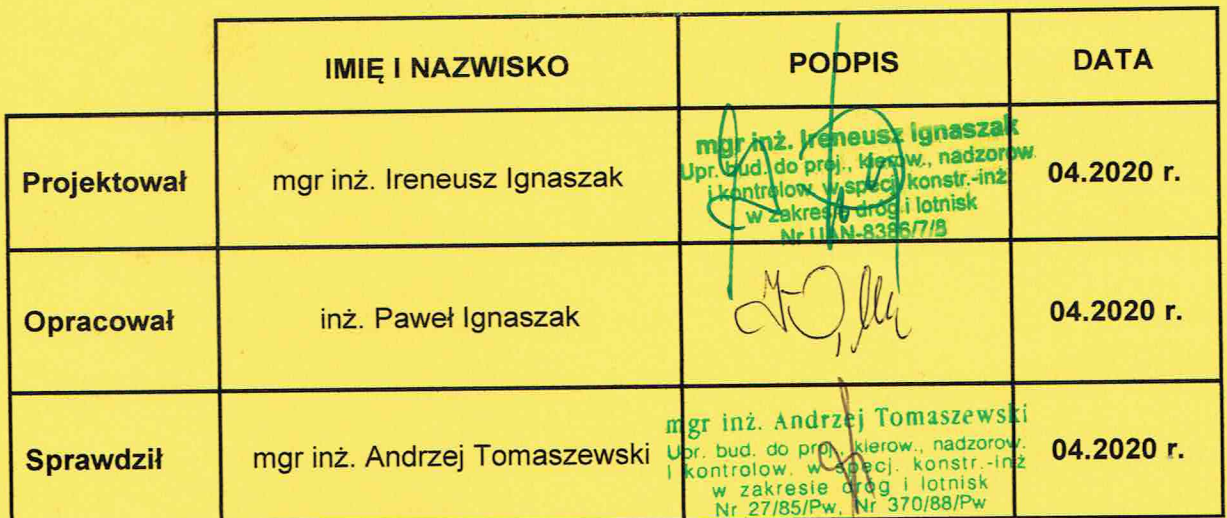 IMIĘ I NAZWISKO PODPIS DATA
Projektował mgr inż. Ireneusz Ignaszak 04.2020 r.
mgr inż. Ireneusz Ignaszak
Upr. bud. do proj., kierow., nadzorow.
i kontrolow. w specj. konstr.-inż
w zakresie dróg i lotnisk
Nr UAN-8386/7/8
Opracował inż. Paweł Ignaszak 04.2020 r.
Sprawdził mgr inż. Andrzej Tomaszewski 04.2020 r.
mgr inż. Andrzej Tomaszewski
Upr. bud. do proj., kierow., nadzorow.
i kontrolow. w specj. konstr.-inż
w zakresie dróg i lotnisk
Nr 27/85/Pw, Nr 370/88/Pw